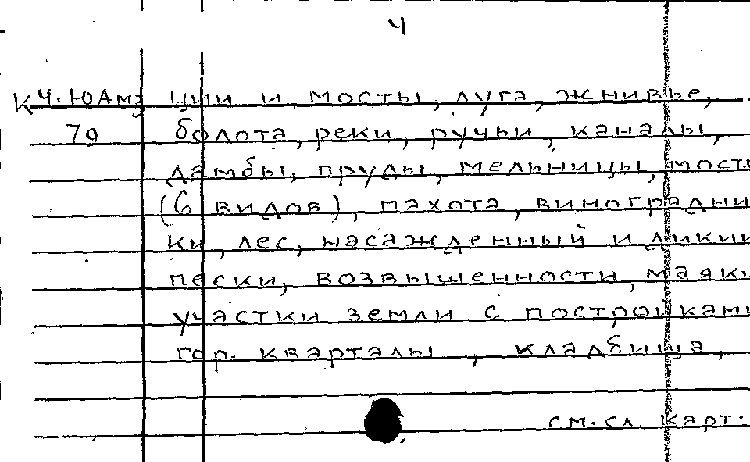 4
К 4. ЮАмз ции и мосты, луга, жнивье,
79 болота, реки, ручьи, каналы,
дамбы, пруды, мельницы, мост
(6 видов), пахота, виноградни
ки, лес, насажденный и дикий
пески, возвышенности, маяки
участки земли с постройками
гор. кварталы, кладбища,
см. сл. карт.